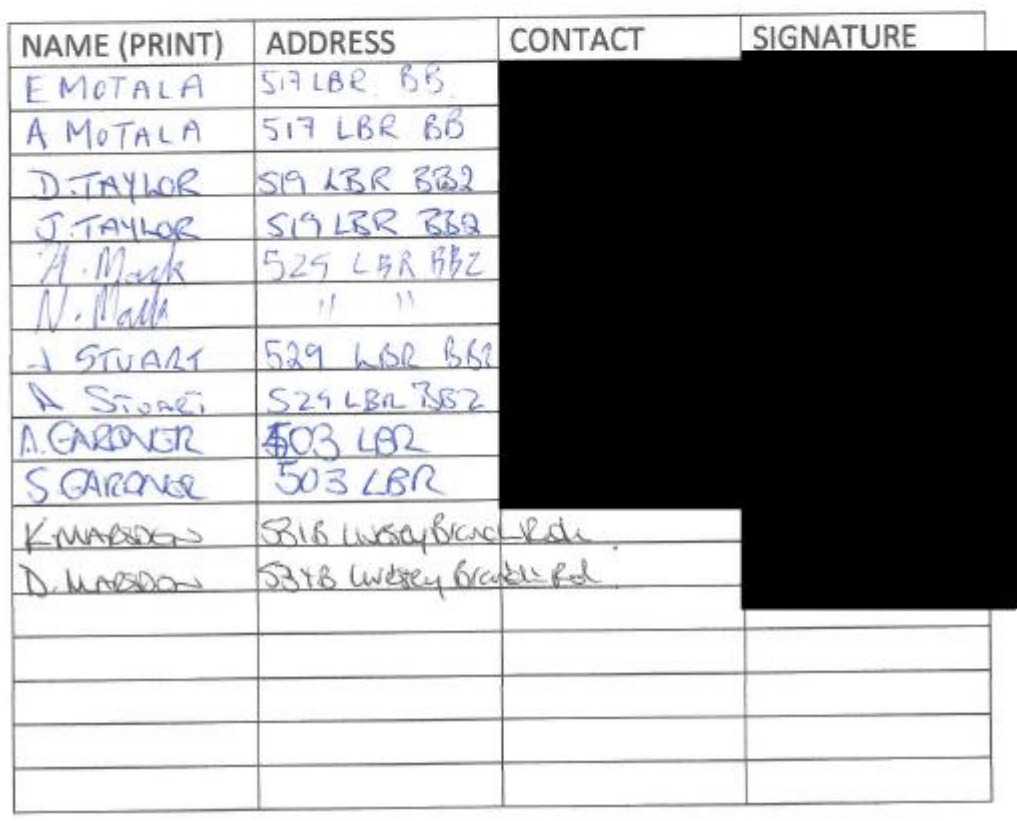 NAME (PRINT) ADDRESS CONTACT SIGNATURE
E MOTALA 517 LBR BB.
A MOTALA 517 LBR BB
D. TAYLOR 519 LBR BB2
J. TAYLOR 519 LBR BB2
525 LBR BB2
N. " "
J STUART 529 LBR BB2
A STUART 529 LBR BB2
A. GARDNER 503 LBR
S GARDNER 503 LBR
K MARSDEN Livesey Branch Rd
D. MARSDEN Livesey Branch Rd.